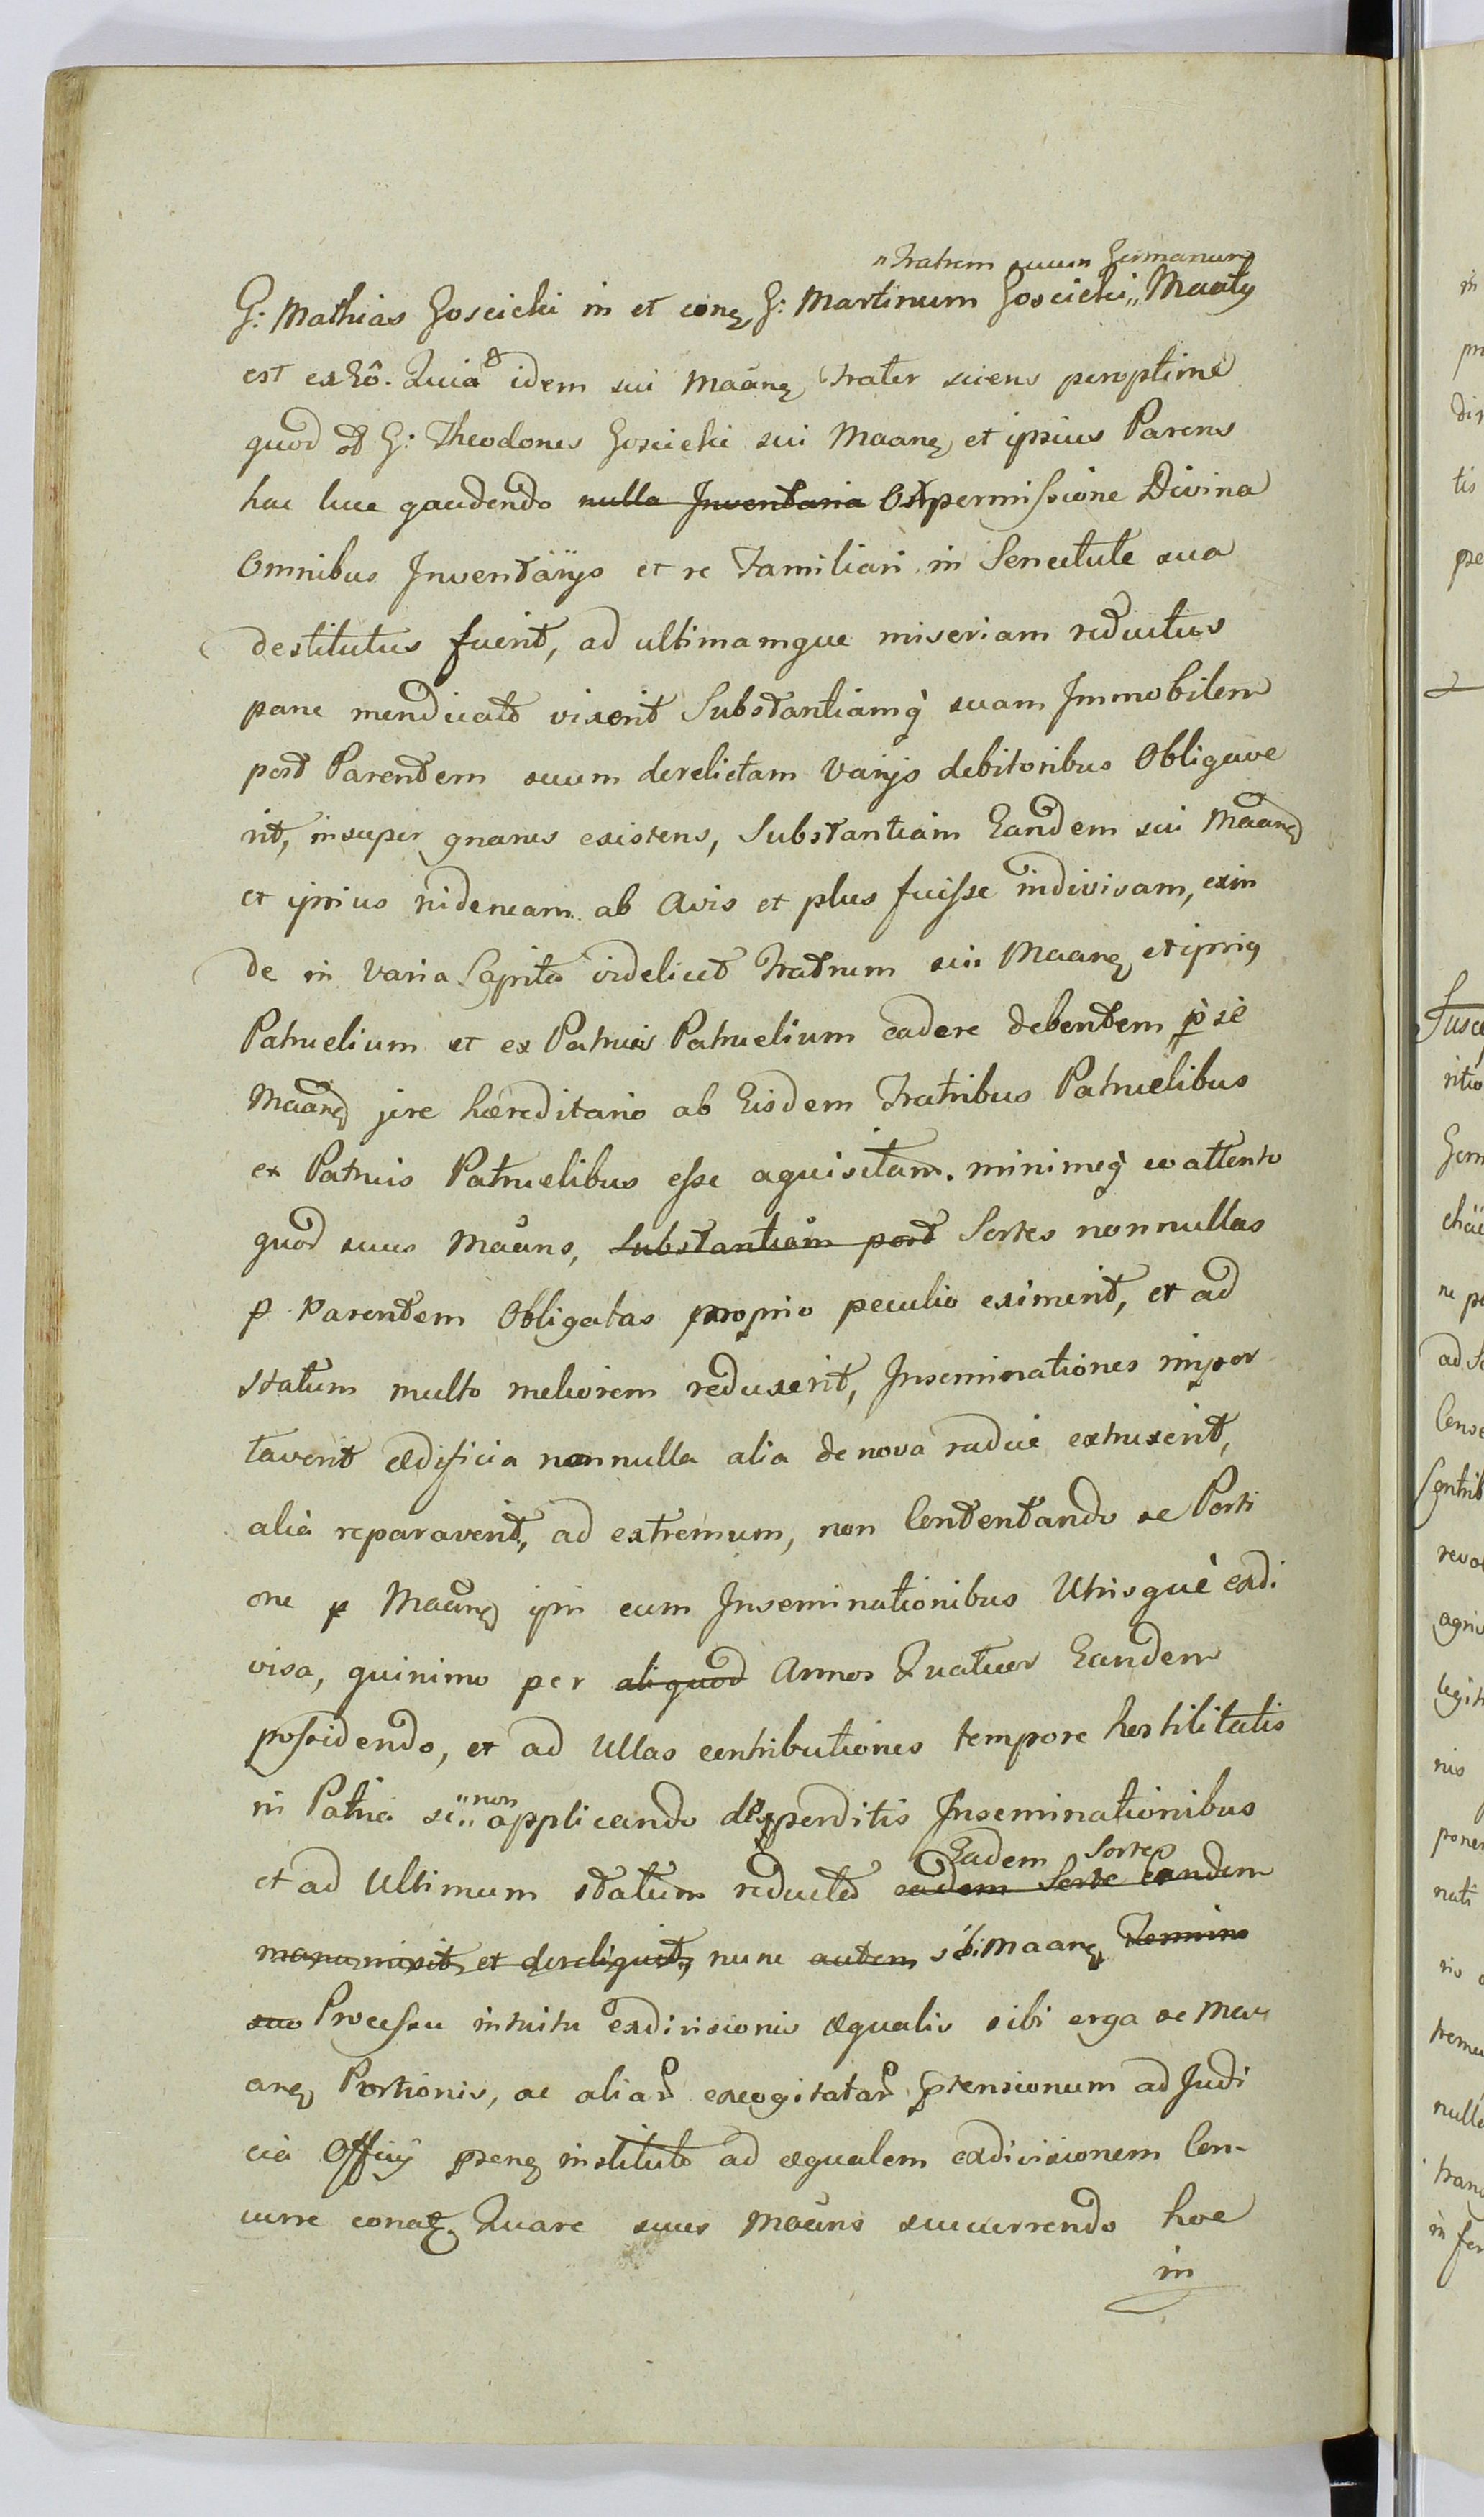 "Fratrem suum Germanum
G: Mathias Goscicki in et conq G: Martinum Goscicki,, Maatg
est ex Eô. Quia idem sui Maanq Frater sciens peroptime
quod G: Theodorus Goscicki sui Maanq et ipsius Parens
hac luce gaudendo nulla Inventaria Ex permissione Divina
Omnibus Inventarijs et re Familiari in Senectute sua
destitutus fuerit, ad ultimamque miseriam reductus
pane mendicato vixerit Substantiamq suam Immobilem
post Parentem suum derelictam Varijs debitoribus Obligave
rit, insuper gnarus existens, Substantiam Eandem sui Maanq
et ipsius ab Avis et plus fuisse indivisam, exin
de in varia Capita videlicet Fratrum sui Maanq et ipsius
Patruelium et ex Patruis Patruelium cadere debentem p se
Maanq jure hæreditario ab Eisdem Fratribus Patruelibus
ex Patruis Patruelibus esse aquisitam. minimeq eo attento
quod suus Maans, Substantiam post Sortes nonnullas
p Parentem Obligatas proprio peculio eximerit, et ad
statum multo meliorem reduxerit, Inseminationes impor
taverit ædificia nonnulla alia de nova radice extruxerit,
alia reparaverit, ad extremum, non Contentando se Porti
one p Maanq ipsi cum Inseminationibus Utrisque exdi.
visa, quinimo per aliquod Annos Quatuor Eandem
possidendo, et ad Ullas contributiones tempore hostilitatis
in Patria se "non" applicando desperditis Inseminationibus
Eadem Sorte
et ad Ultimum statum reducto eadem Sorte eandem
manumisit et dereliquit, nunc autem sui Maanq Termino
suo Processu intuitu exdivisionis æqualis sibi erga se Maa
anq Portionis, ac aliar excogitatar ptensionum ad Judi
cia Officij psenq instituto ad æqualem exdivisionem Con-
currre conatq Quare suus Maans succurrendo hoc
in